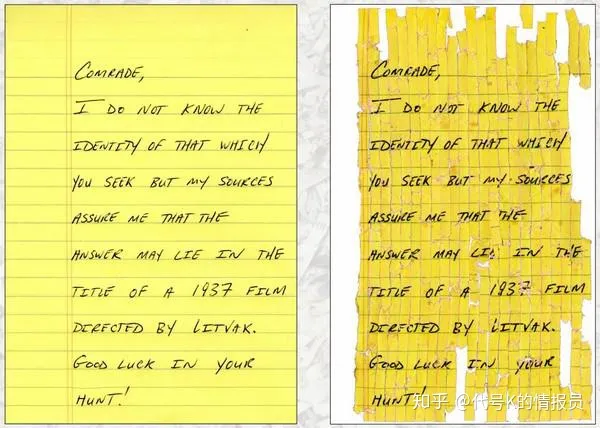 COMRADE,
I DO NOT KNOW THE
IDENTITY OF THAT WHICH
YOU SEEK BUT MY SOURCES
ASSURE ME THAT THE
ANSWER MAY LIE IN THE
TITLE OF A 1937 FILM
DIRECTED BY LITVAK.
GOOD LUCK IN YOUR
HUNT!
COMRADE,
I DO NOT KNOW THE
IDENTITY OF THAT WHICH
YOU SEEK BUT MY SOURCES
ASSURE ME THAT THE
ANSWER MAY LIE IN THE
TITLE OF A 1937 FILM
DIRECTED BY LITVAK.
GOOD LUCK IN YOUR
HUNT!
知乎 @代号K的情报员